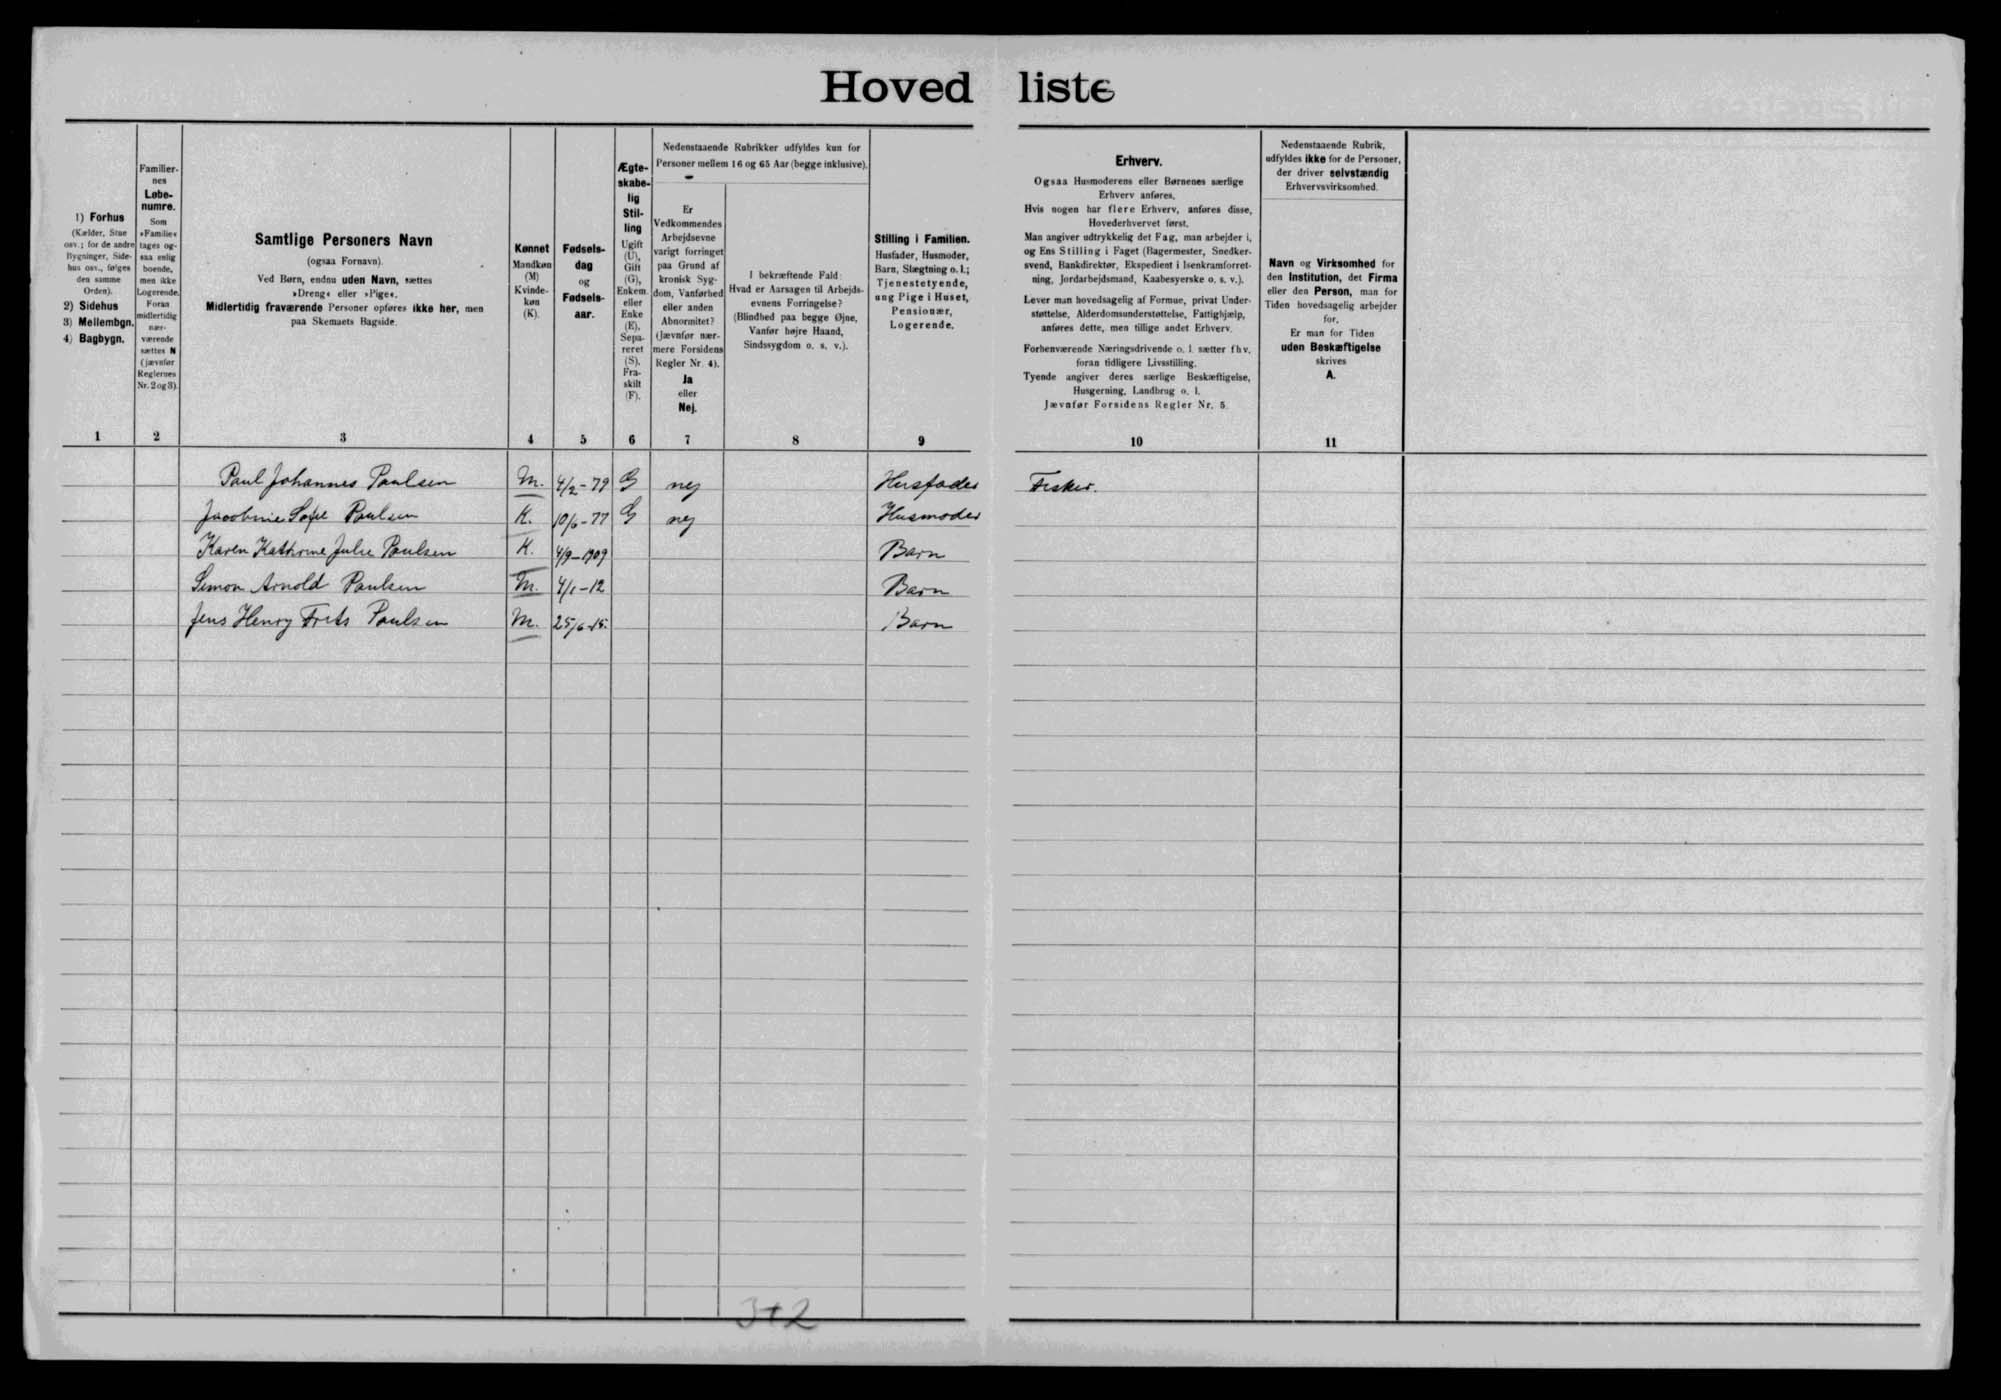 Hovedliste
1) Forhus
(Kælder, Stue
osv.; for de andre
Bygninger, Side-
hus osv., følges
den samme
Orden).
2) Sidehus
3) Mellembgn.
4) Bagbygn.
1
Familier-
nes
Løbe-
numre.
Som
»Familie«
tages og-
saa enlig
boende,
men ikke
Logerende.
Foran
midlertidig
nær-
værende
sættes N
(jævnfør
Reglernes
Nr. 2 og 3).
2
Samtlige Personers Navn
(ogsaa Fornavn).
Ved Børn, endnu uden Navn, sættes
»Dreng« eller »Pige«.
Midlertidig fraværende Personer opføres ikke her, men
paa Skemaets Bagside.
3
Kønnet
Mandkøn
(M)
Kvinde-
køn
(K).
4
Fødsels-
dag
og
Fødsels-
aar.
5
Ægte-
skabe-
lig
Stil-
ling
Ugift
(U),
Gift
(G),
Enkem.
eller
Enke
(E),
Sepa-
reret
(S).
Fra-
skilt
(F).
6
Nedenstaaende Rubrikker udfyldes kun for
Personer mellem 16 og 65 Aar (begge inklusive).
Er
Vedkommendes
Arbejdsevne
varigt forringet
paa Grund af
kronisk Syg-
dom, Vanførhed
eller anden
Abnormitet?
(Jævnfør nær-
mere Forsidens
Regler Nr. 4).
Ja
eller
Nej.
7
I bekræftende Fald:
Hvad er Aarsagen til Arbejds-
evnens Forringelse?
(Blindhed paa begge Øjne,
Vanfør højre Haand,
Sindssygdom o. s. v.).
8
Stilling i Familien.
Husfader, Husmoder,
Barn, Slægtning o. l.;
Tjenestetyende,
ung Pige i Huset,
Pensionær,
Logerende.
9
Erhverv.
Ogsaa Husmoderens eller Børnenes særlige
Erhverv anføres.
Hvis nogen har flere Erhverv, anføres disse,
Hovederhvervet først.
Man angiver udtrykkelig det Fag, man arbejder i,
og Ens Stilling i Faget (Bagermester, Snedker-
svend, Bankdirektør, Ekspedient i Isenkramforret-
ning, Jordarbejdsmand, Kaabesyerske o. s. v.).
Lever man hovedsagelig af Formue, privat Under-
støttelse, Alderdomsunderstøttelse, Fattighjælp,
anføres dette, men tillige andet Erhverv.
Forhenværende Næringsdrivende o. l. sætter fhv.
foran tidligere Livsstilling.
Tyende angiver deres særlige Beskæftigelse,
Husgerning, Landbrug o. l.
Jævnfør Forsidens Regler Nr. 5.
10
Nedenstaaende Rubrik,
udfyldes ikke for de Personer,
der driver selvstændig
Erhvervsvirksomhed.
Navn og Virksomhed for
den Institution, det Firma
eller den Person, man for
Tiden hovedsagelig arbejder
for.
Er man for Tiden
uden Beskæftigelse
skrives
A.
11
Paul Johannes Paulsen M. 4/2-79 G nej Husfader Fisker.
Jacobine Sofie Paulsen K. 10/6-77 G nej Husmoder
Karen Kathrine Julie Paulsen K. 4/9-1909 Barn
Simon Arnold Paulsen M. 4/1-12 Barn
Jens Henry Frits Paulsen M. 25/6-15. Barn
3+2